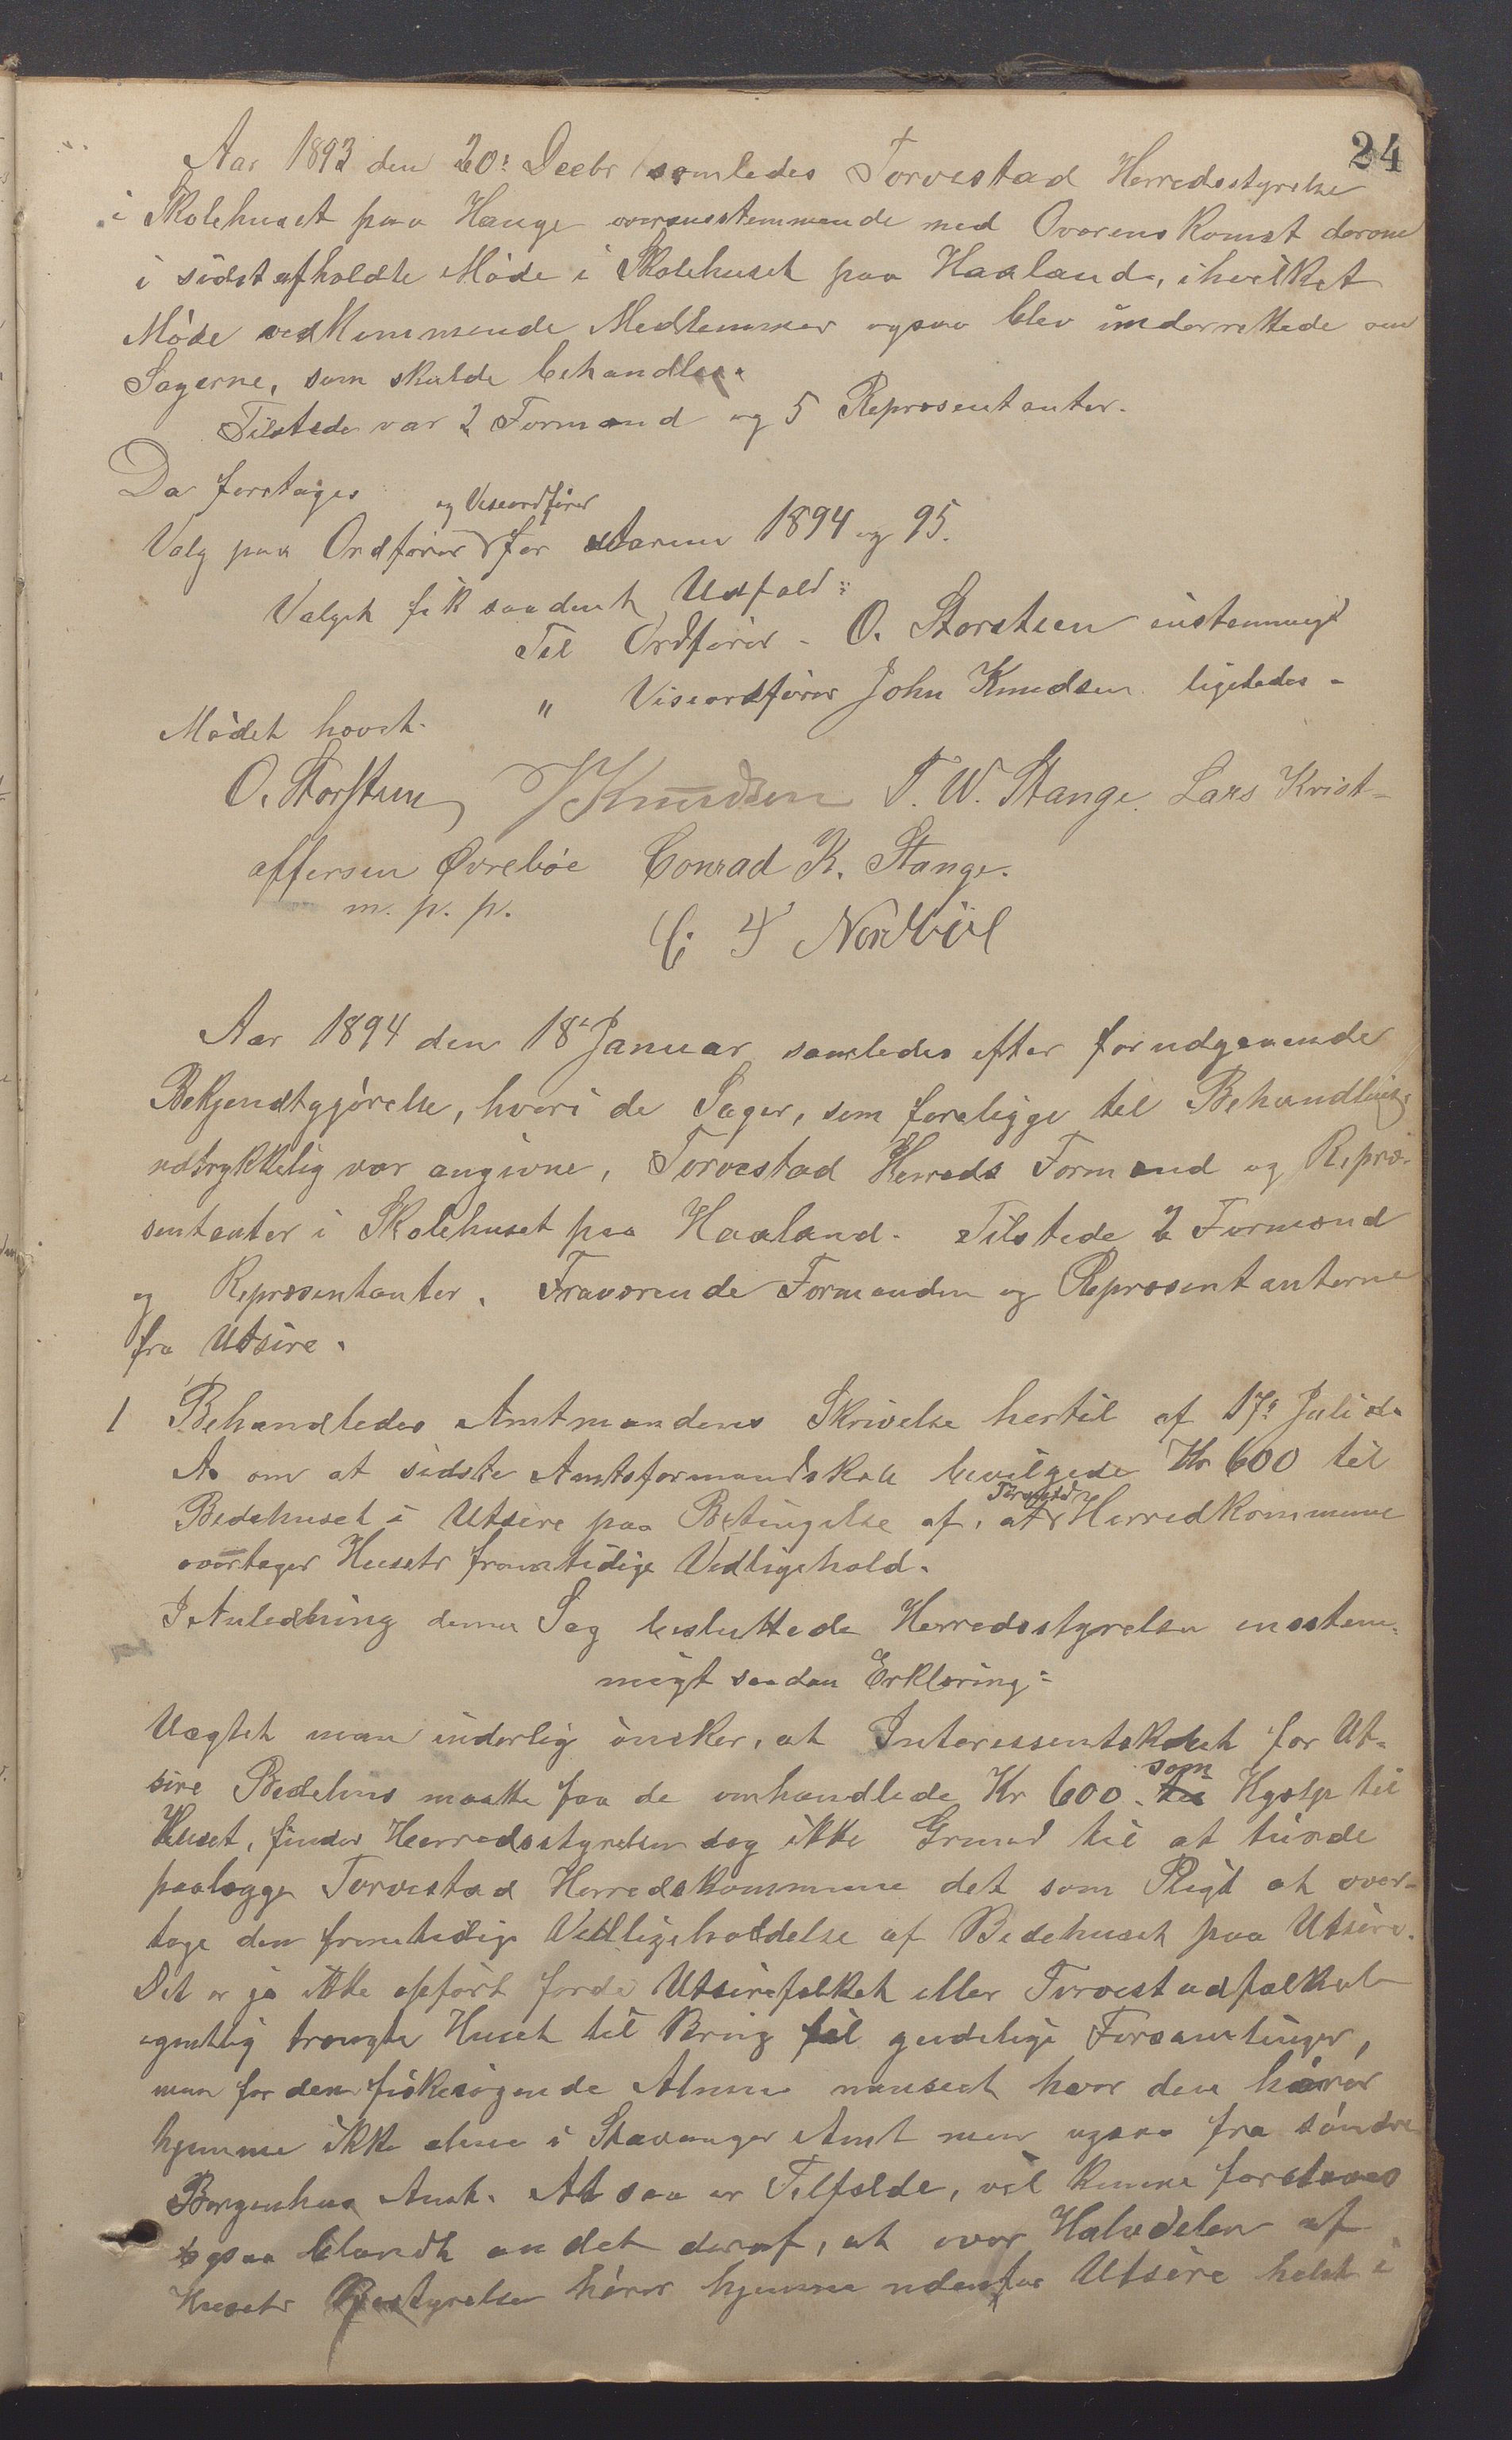 24
Aar 1893 den 20: Decbr samledes Torvestad Herredsstyrelse
i Skolehuset paa Hauge overensstemmende med Overenskomst derom
i sidst afholdte Møde i Skolehuset paa Haaland, i hvilket
Møde vedkommende Medlemmer ogsaa blev underrettede om
Sagerne, som skulde behandles.
Tilstede var 2 Formænd og 5 Repræsentanter.
Da foretages
og Viseordfører
Valg paa Ordfører for Aarene 1894 og 95.
Valget fik saadant Udfald:
Til Ordfører - O. Storsteen enstemmigt
" Viseordfører John Knudsen ligeledes -
Mødet hævet.
O. Storsteen J Knudsen T. W. Stange. Lars Krist-
offersen Øvrebøe Conrad K. Stange.
m. p. p.
C. T Nordbøe
Aar 1894 den 18: Januar samledes efter forudgaaende
Bekjendtgjørelse, hvori de Sager, som foreligge til Behandling
udtrykkelig var angivne, Torvestad Herreds Formænd og Repræ-
sentanter i Skolehuset paa Haaland. Tilstede 2 Formænd
og Repræsentanter. Fraværende Formanden og Repræsentanterne
fra Utsire.
1 Behandledes Amtmandens Skrivelse hertil af 17: Juli d.
A. om at sidste Amtsformandskab bevilgede Kr 600 til
Torvestad
Bedehuset i Utsire paa Betingelse af, at Herredkommune
overtager Husets fremtidige Vedligehold.
I Anledning denne Sag besluttede Herredsstyrelsen enstem-
migt saadan Erklæring:
Uagtet man inderlig ønsker, at Interessentskabet for Ut-
som
sire Bedehus maatte faa de omhandlede Kr 600. til Hjælp til
Huset, finder Herredsstyrelsen dog ikke Grund til at turde
paalægge Torvestad Herredskommune det som Pligt at over-
tage den fremtidige Vedligeholdelse af Bedehuset paa Utsire.
Det er jo ikke opført fordi Utsirefolket eller Torvestadfolket
egentlig trængte Huset til Brug til gudelige Forsamlinger,
men for den fiskesøgende Almue uanseet hvor den hører
hjemme ikke alene i Stavanger Amt men ogsaa fra søndre
Bergenhus Amt. At saa er Tilfælde, vil kunne forstaaes
ogsaa blandt andet deraf, at over Halvdelen af
Husets Bestyrelse hører hjemme udenfor Utsire helst i